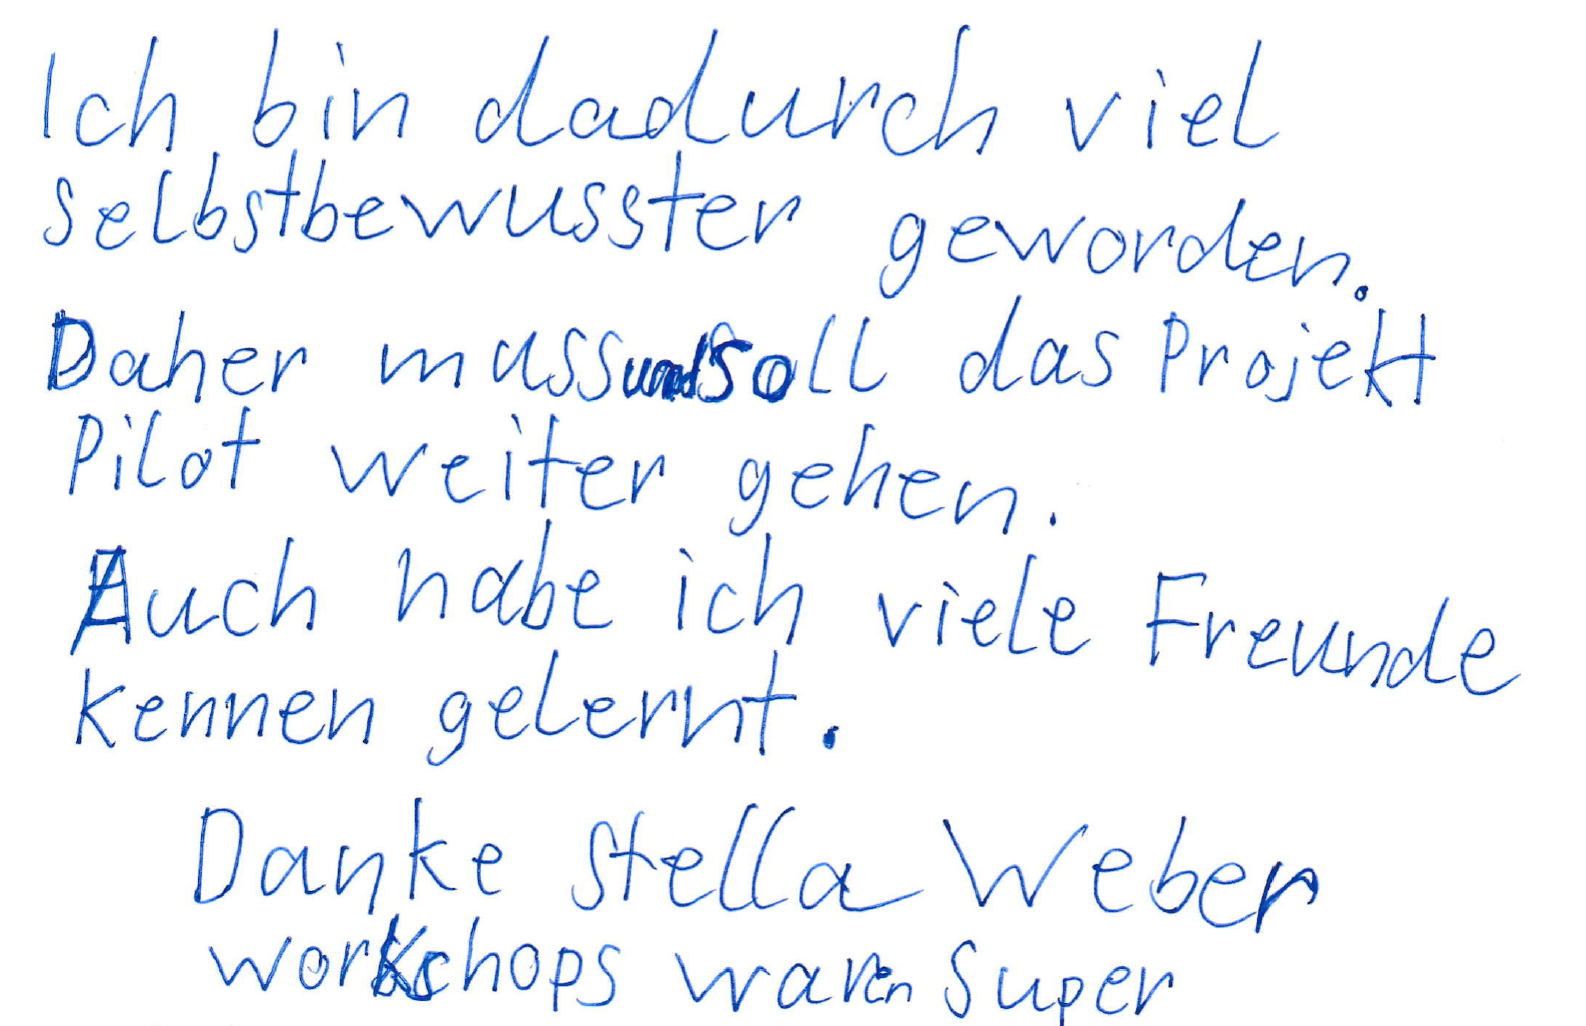 Ich bin dadurch viel
selbstbewusster geworden.
Daher muss und soll das Projekt
Pilot weiter gehen.
Auch habe ich viele Freunde
kennen gelernt.
Danke Stella Weber
workschops waren Super